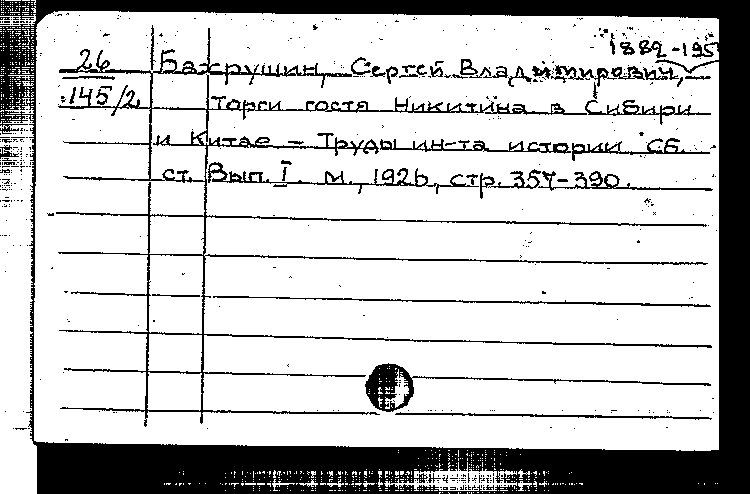 1882-195
26 Бахрушин, Сергей Владимирович,
145/2 Торги гостя Никитина в Сибири
и Китае = Труды ин-та истории. Сб.
ст. Вып. I. М., 1926, стр. 357-390.